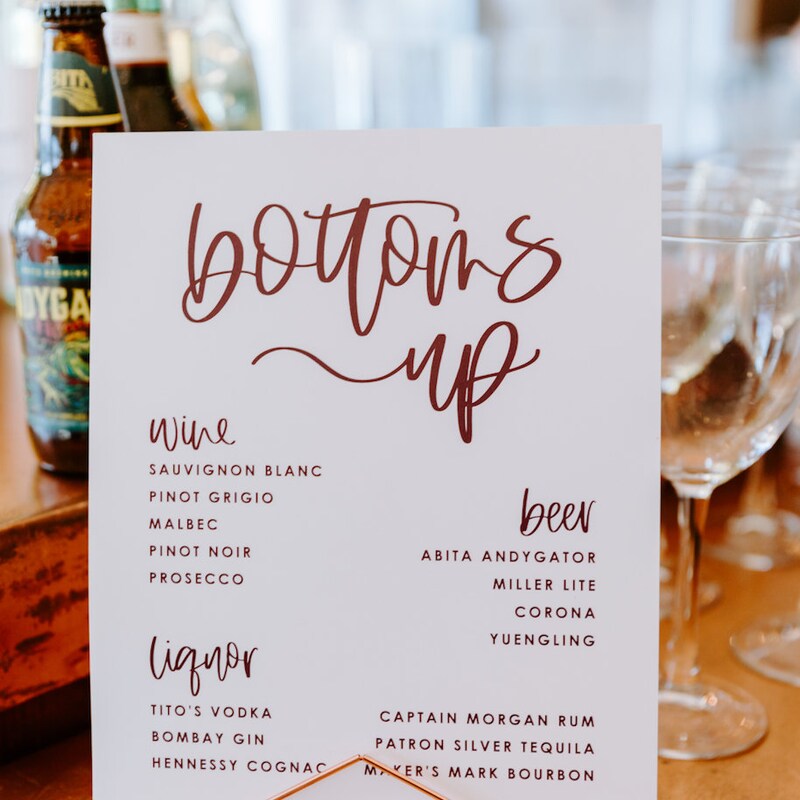 bottoms
up
wine
SAUVIGNON BLANC
PINOT GRIGIO
MALBEC
PINOT NOIR
PROSECCO
beer
ABITA ANDYGATOR
MILLER LITE
CORONA
YUENGLING
liquor
TITO'S VODKA
BOMBAY GIN
HENNESSY COGNAC
CAPTAIN MORGAN RUM
PATRON SILVER TEQUILA
MAKER'S MARK BOURBON
BITA
DYGA